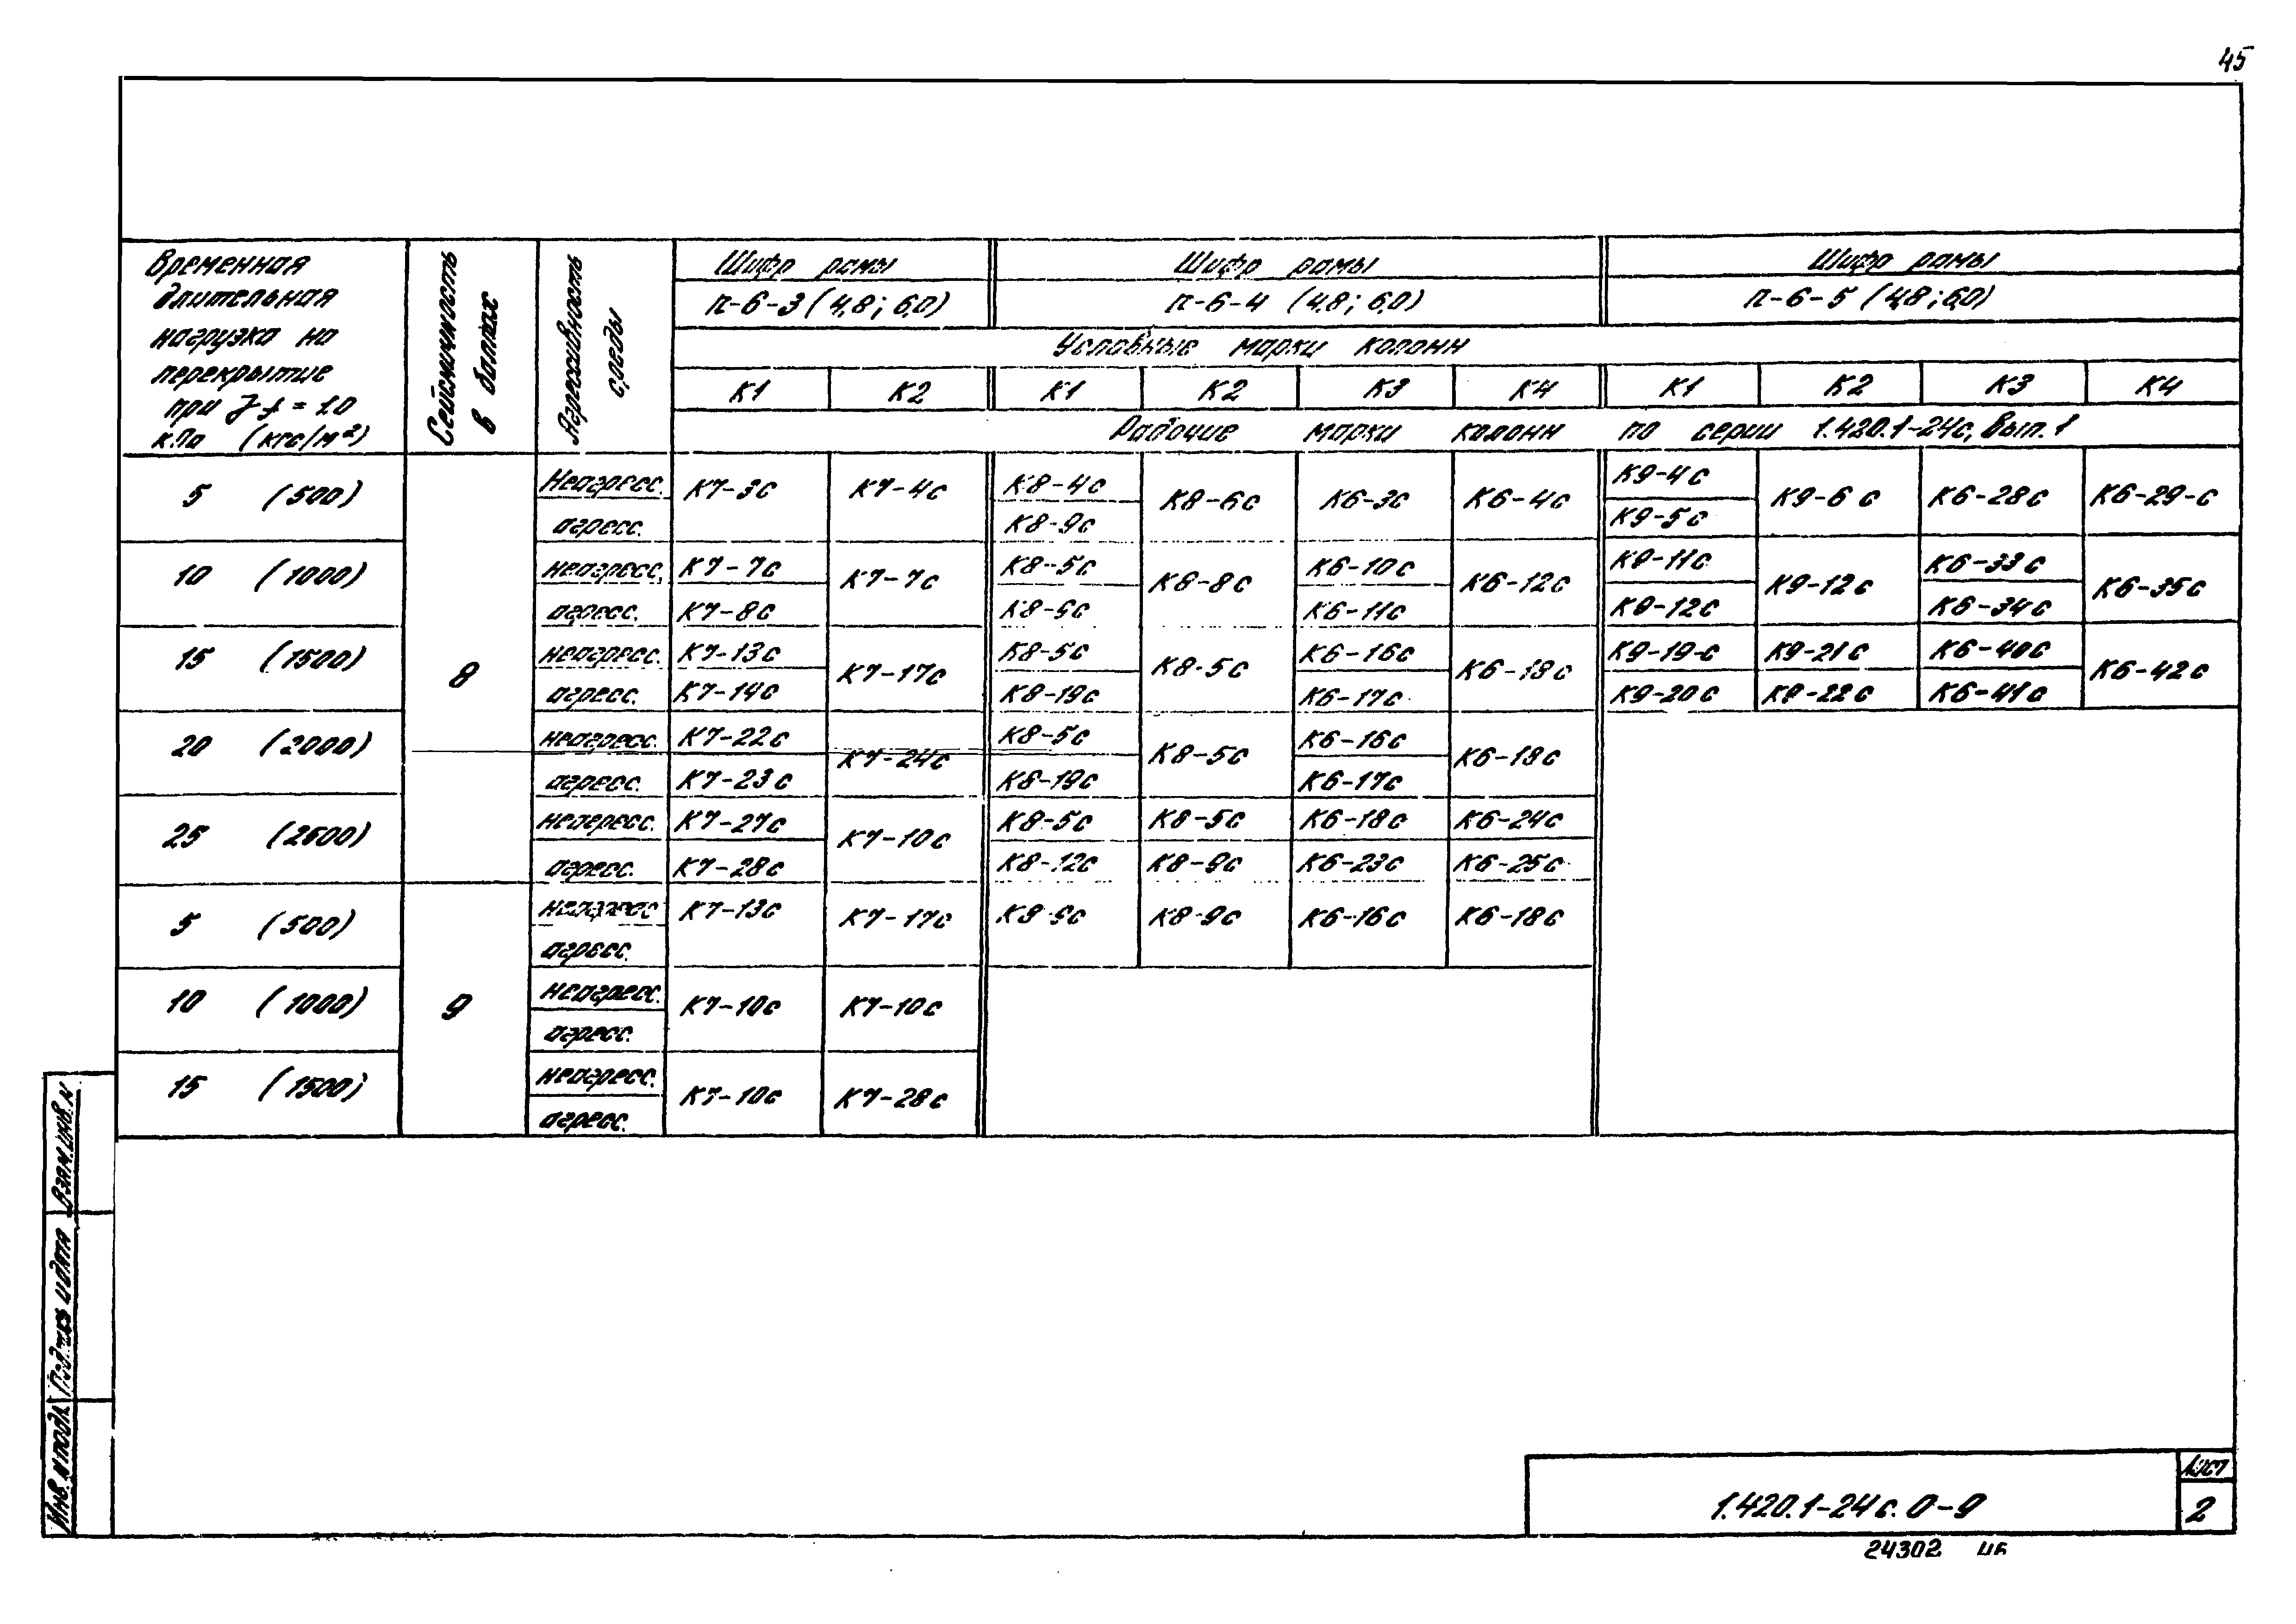 45
Временная длительная нагрузка на перекрытие при γf = 1.0 кПа (кгс/м²)
Сейсмичность в баллах
Агрессивность среды
Шифр рамы
Шифр рамы
Шифр рамы
п-6-3 (4,8; 6,0)
п-6-4 (4,8; 6,0)
п-6-5 (4,8; 6,0)
Условные марки колонн
К1 К2 К1 К2 К3 К4 К1 К2 К3 К4
Рабочие марки колонн по серии 1.420.1-24с, Вып. 1
5 (500)
8
Неагресс. К7-3с К7-4с К8-4с К8-6с К6-3с К6-4с К9-4с К9-6с К6-28с К6-29-с
агресс. К8-9с К9-5с
10 (1000)
неагресс. К7-7с К7-7с К8-5с К8-8с К6-10с К6-12с К9-11с К9-12с К6-33с К6-35с
агресс. К7-8с К6-11с К9-12с К6-34с
15 (1500)
неагресс. К7-13с К7-17с К8-5с К8-5с К6-16с К6-18с К9-19-с К9-21с К6-40с К6-42с
агресс. К7-14с К8-19с К6-17с К9-20с К9-22с К6-41с
20 (2000)
неагресс. К7-22с К7-24с К8-5с К8-5с К6-16с К6-18с
агресс. К7-23с К8-19с К6-17с
25 (2500)
неагресс. К7-27с К7-10с К8-5с К8-5с К6-18с К6-24с
агресс. К7-28с К8-12с К8-9с К6-23с К6-25с
5 (500)
9
неагресс. К7-13с К7-17с К8-9с К8-9с К6-16с К6-18с
агресс.
10 (1000)
неагресс. К7-10с К7-10с
агресс.
15 (1500)
неагресс. К7-10с К7-28с
агресс.
Взам. инв. N
Подпись и дата
Инв. N подл.
1.420.1-24с. 0-9
Лист
2
24302 46